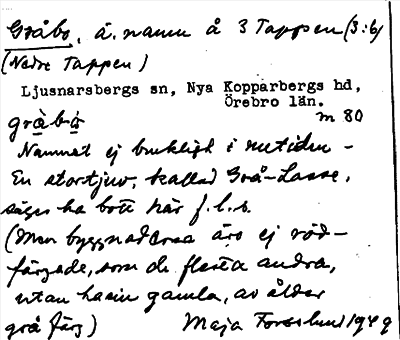 Gråbo, ä. namn å 3 Tappen (3:6)
(Nedre Tappen)
Ljusnarsbergs sn, Nya Kopparbergs hd,
Örebro län.
m 80
grà bó̀
Namnet ej brukligt i nutiden –
En stortjuv, kallad Grå-Lasse,
säges ha bott här f.l.s.
(Men byggnaderna äro ej röd-
färgade, som de flesta andra,
utan ha sin gamla, av ålder
grå färg) Maja Forsslund 1949